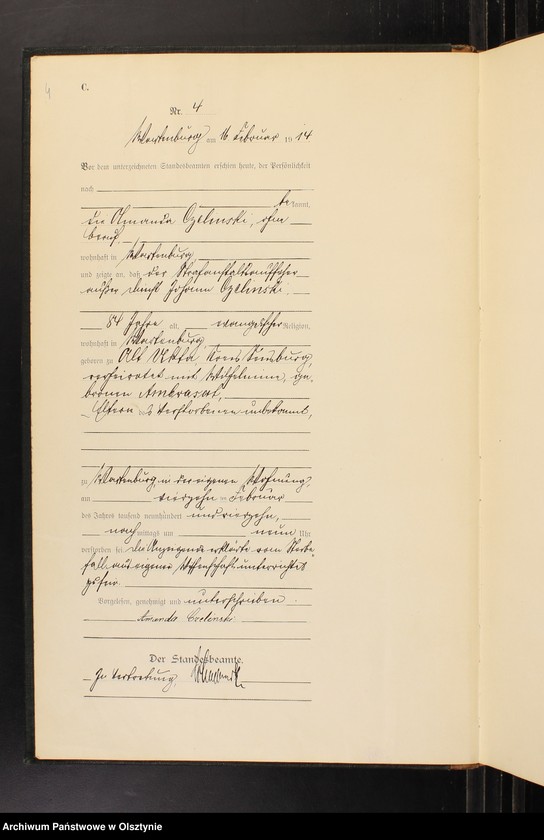 4
C.
Nr. 4
Wartenburg am 16 Februar 1914.
Vor dem unterzeichneten Standesbeamten erschien heute, der Persönlichkeit
nach
bekannt,
die Amanda Czelinski, ohne
Beruf,
wohnhaft in Wartenburg
und zeigte an, daß der Strafanstaltsaufseher
außer Dienst Johann Czelinski
84 Jahre alt, evangelischer Religion,
wohnhaft in Wartenburg
geboren zu Alt Ukta Kreis Sensburg,
verheiratet mit Wilhelmine, ge-
borenen
Eltern des Verstorbenen unbekannt,
zu Wartenburg in der eigenen Wohnung,
am vierzehn ten Februar
des Jahres tausend neunhundert und vierzehn,
nach mittags um neun Uhr
verstorben sei. Die Anzeigende erklärte vom Sterbe-
fall aus eigener Wissenschaft unterrichtet
zu sein.
Vorgelesen, genehmigt und unterschrieben.
Amanda Czelinski
Der Standesbeamte.
In Vertretung
Archiwum Państwowe w Olsztynie